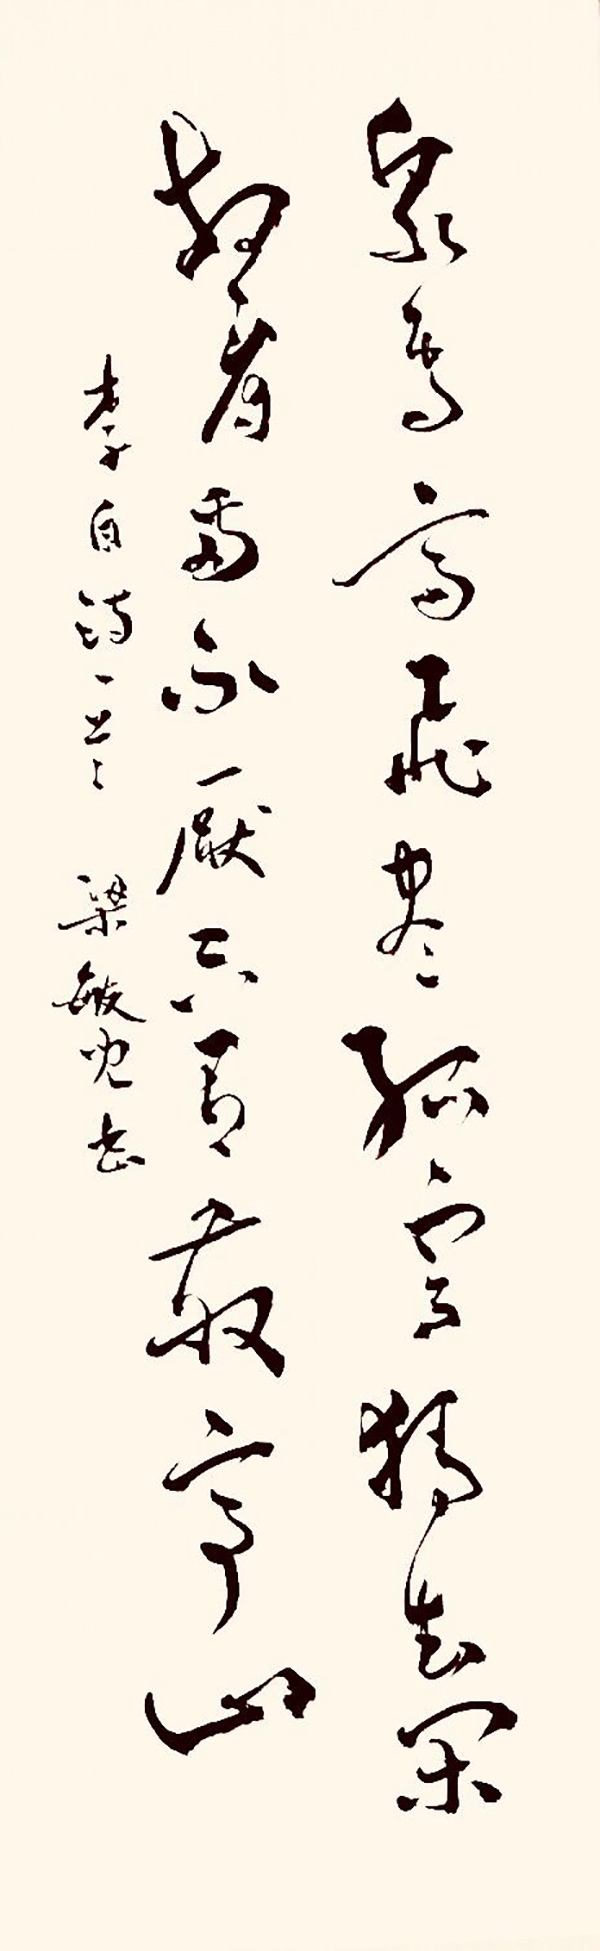 众鸟高飞尽孤云独去闲
相看两不厌只有敬亭山
李白诗一首 梁敏儿书